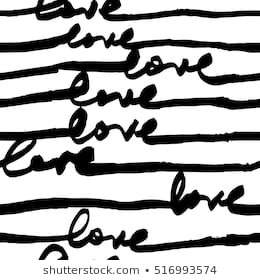 love
love
love
love
love
love
love
love
shutterstock.com • 516993574